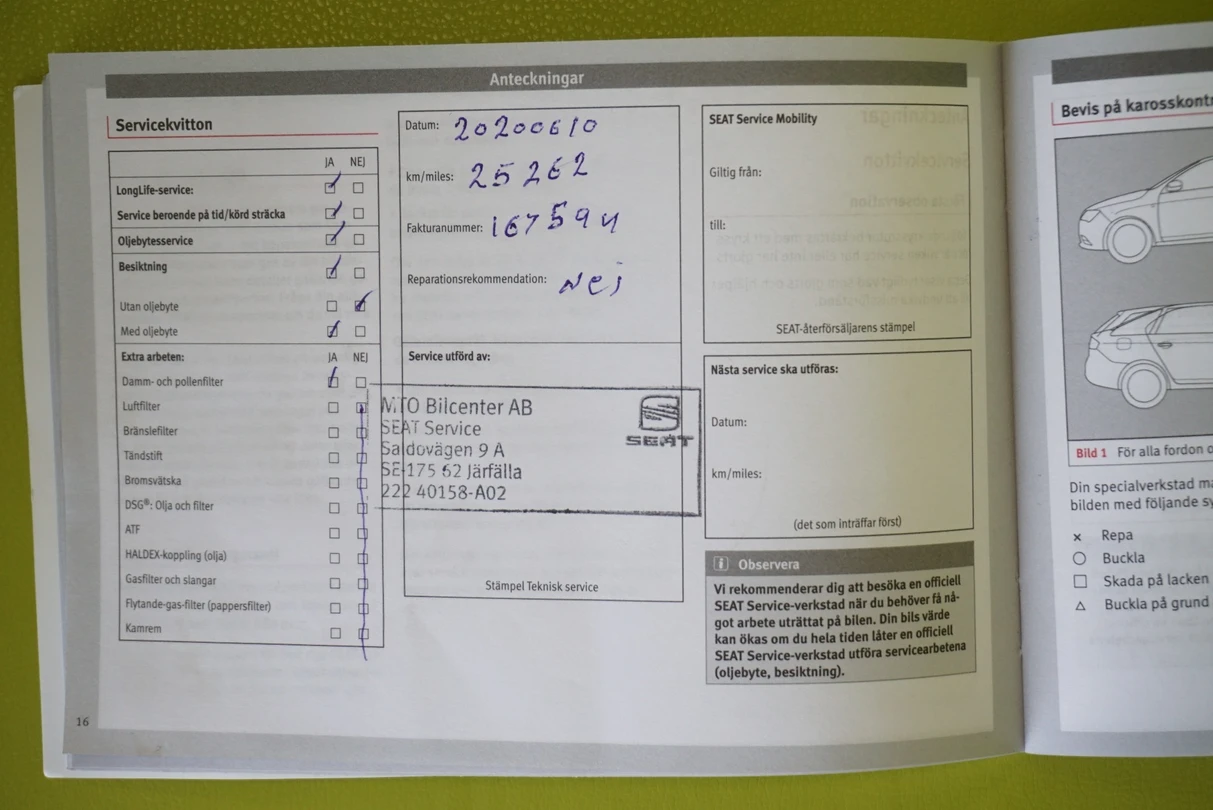 Anteckningar
Servicekvitton
JA NEJ
LongLife-service:
Service beroende på tid/körd sträcka
Oljebytesservice
Besiktning
Utan oljebyte
Med oljebyte
Extra arbeten: JA NEJ
Damm- och pollenfilter
Luftfilter
Bränslefilter
Tändstift
Bromsvätska
DSG®: Olja och filter
ATF
HALDEX-koppling (olja)
Gasfilter och slangar
Flytande-gas-filter (pappersfilter)
Kamrem
16
Datum: 20200610
km/miles: 25262
Fakturanummer: 167594
Reparationsrekommendation: Nej
Service utförd av:
MTO Bilcenter AB
SEAT Service
Saldovägen 9 A
SE-175 62 Järfälla
222 40158-A02
SEAT
Stämpel Teknisk service
SEAT Service Mobility
Giltig från:
till:
SEAT-återförsäljarens stämpel
Nästa service ska utföras:
Datum:
km/miles:
(det som inträffar först)
i Observera
Vi rekommenderar dig att besöka en officiell
SEAT Service-verkstad när du behöver få nå-
got arbete uträttat på bilen. Din bils värde
kan ökas om du hela tiden låter en officiell
SEAT Service-verkstad utföra servicearbetena
(oljebyte, besiktning).
Bevis på karosskont
Bild 1 För alla fordon
Din specialverkstad
bilden med följande
Repa
Buckla
Skada på lacken
Buckla på grund